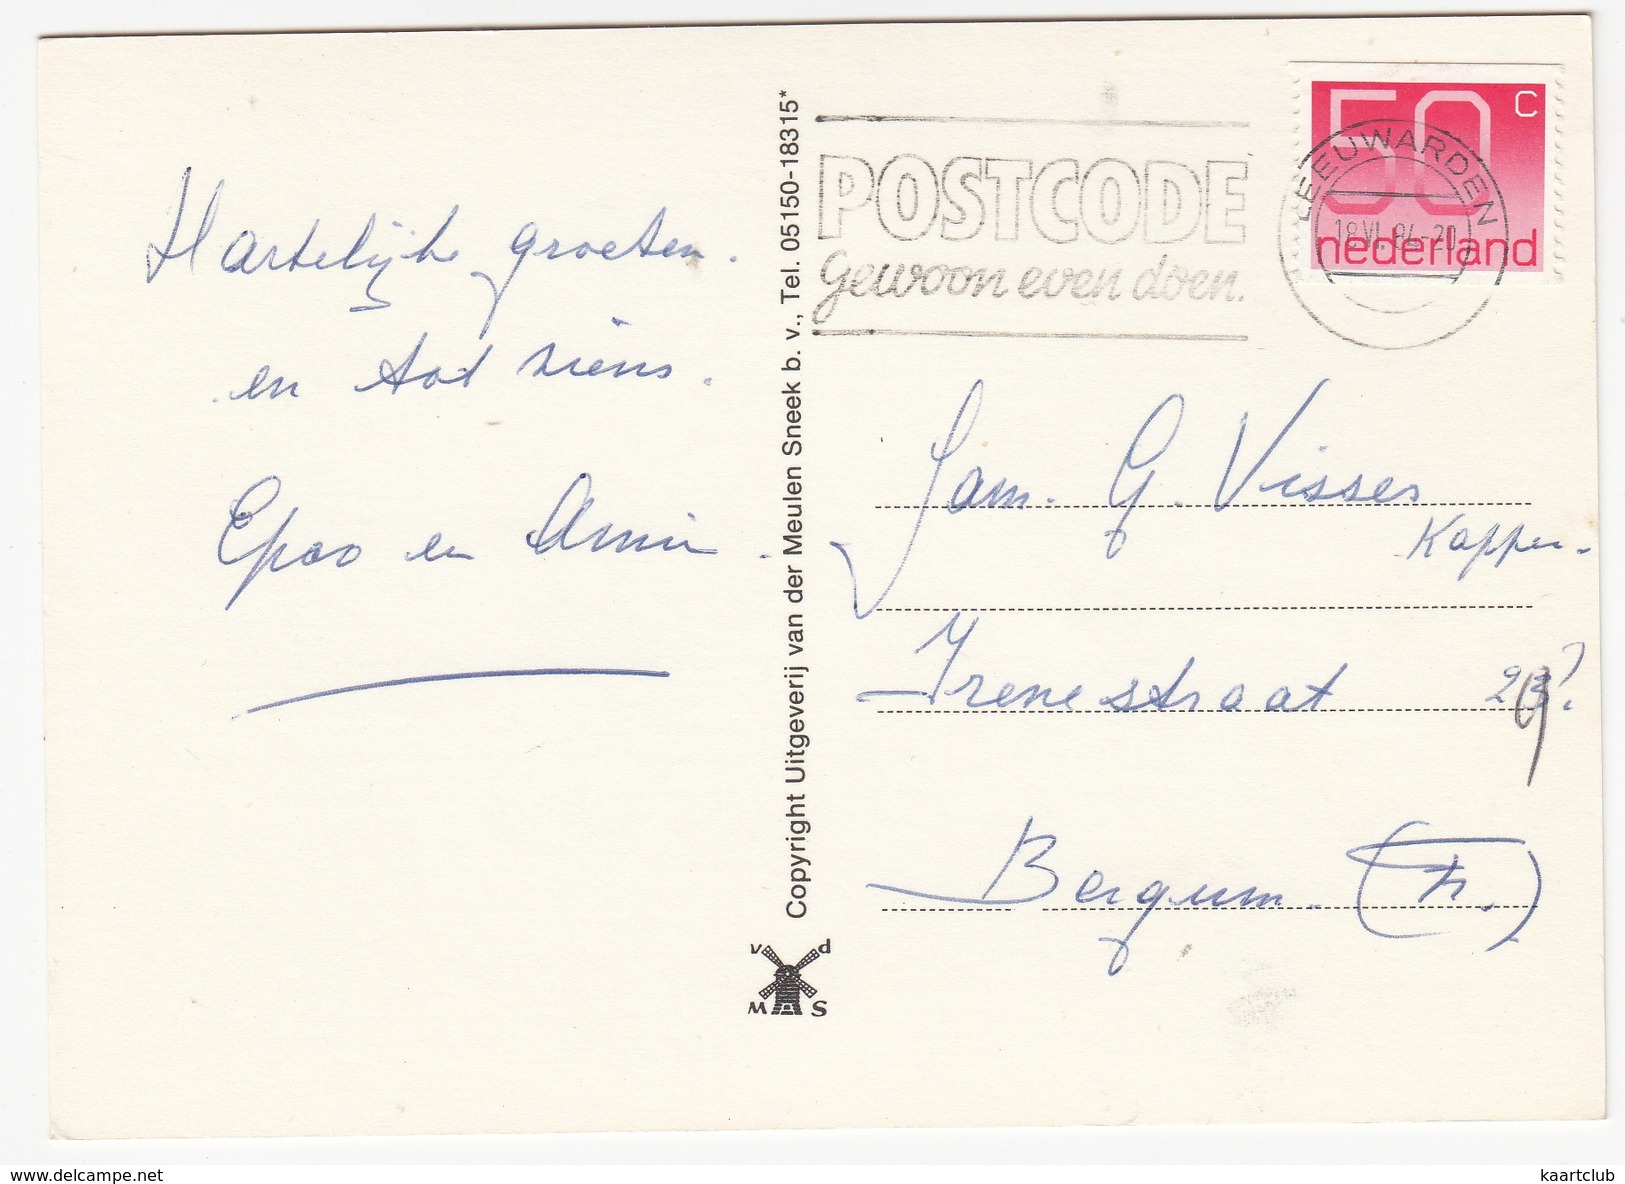 Hartelijke groeten.
en tot ziens.
Epoo en Annie.
Copyright Uitgeverij van der Meulen Sneek b. v., Tel. 05150-18315*
v d
M S
POSTCODE
gewoon even doen.
50 c
nederland
LEEUWARDEN
18.VI.84-20
Fam. G. Visser
Kapper.
Irenestraat 29?
Bergum. (Fr.)
delcampe.net
kaartclub